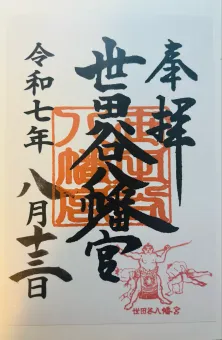 奉拝
世田谷八幡宮
令和七年
八月十三日
世田谷八幡宮